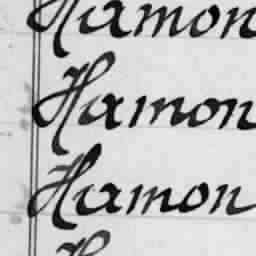 Hamon
Hamon
Hamon
H